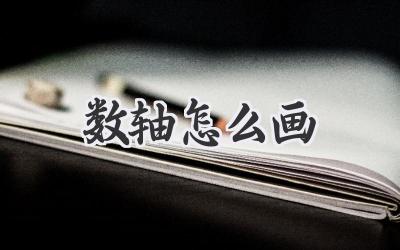 数轴怎么画